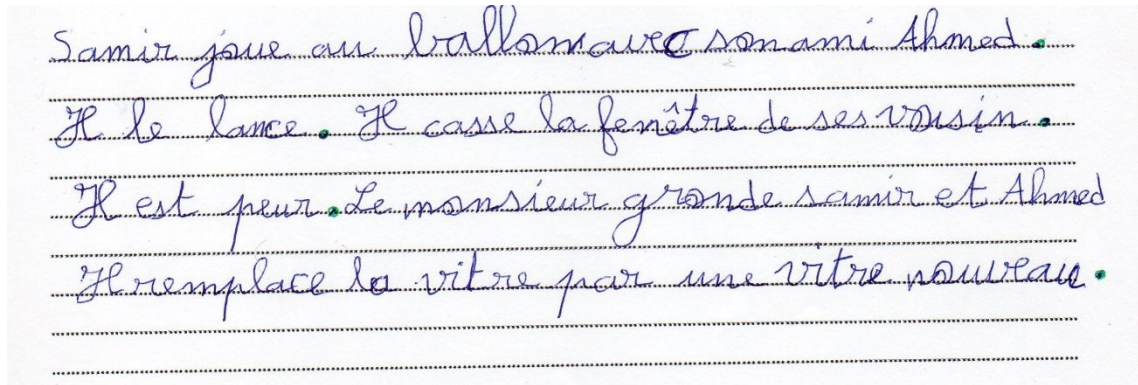 Samir joue au ballon avec son ami Ahmed.
Il le lance. Il casse la fenêtre de ses voisin.
Il est peur. Le monsieur gronde samir et Ahmed
Il remplace la vitre par une vitre nouveau.